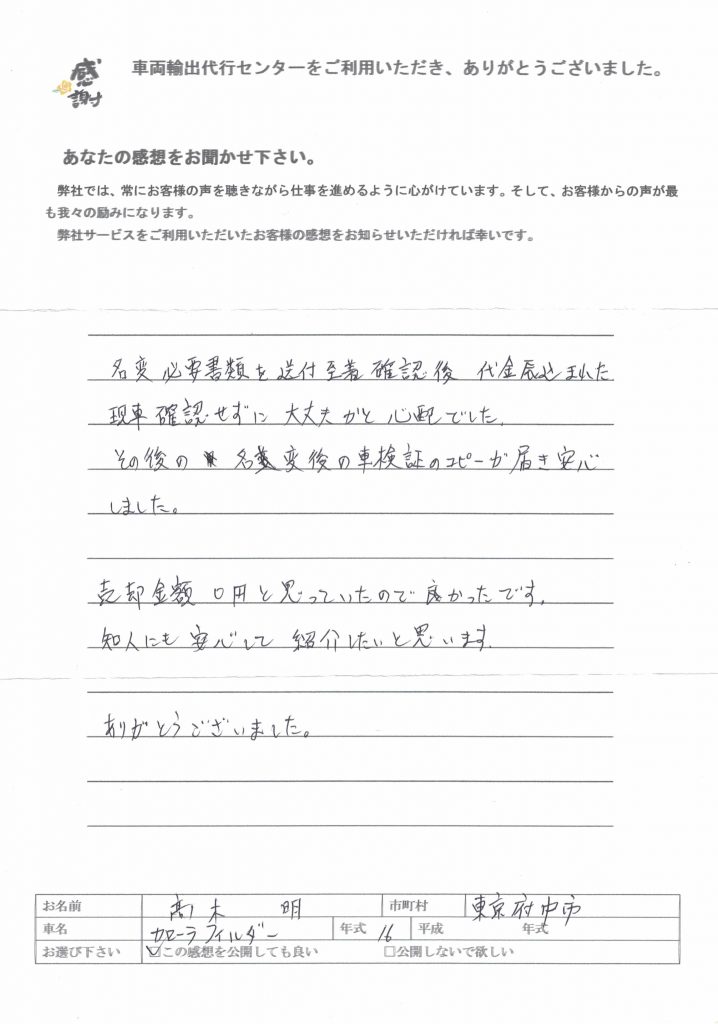 感謝
車両輸出代行センターをご利用いただき、ありがとうございました。
あなたの感想をお聞かせ下さい。
弊社では、常にお客様の声を聴きながら仕事を進めるように心がけています。そして、お客様からの声が最
も我々の励みになります。
弊社サービスをご利用いただいたお客様の感想をお知らせいただければ幸いです。
名変必要書類を送付至着確認後 代金振込まれた
現車確認せずに大丈夫かと心配でした。
その後の 名変後の車検証のコピーが届き安心
しました。
売却金額0円と思っていたので良かったです。
知人にも安心して紹介したいと思います。
ありがとうございました。
お名前 高木 明 市町村 東京府中市
車名 カローラフィルダー 年式 16 平成 年式
お選び下さい ☑この感想を公開しても良い □公開しないで欲しい